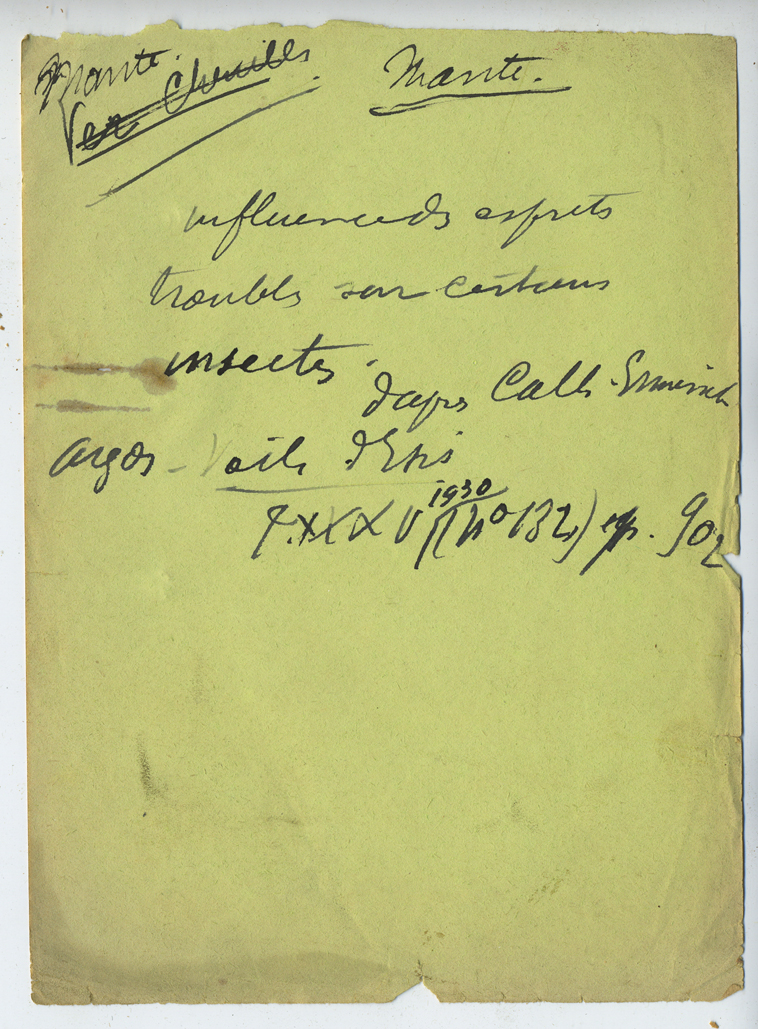 Mante.
Ver Chenilles
Mante.
influence ds esprits
troubls sur certains
insectes.
d'aprs Calls
Argos - Voile d'Isis
T. XXXV 1930 (no 132) p. 902